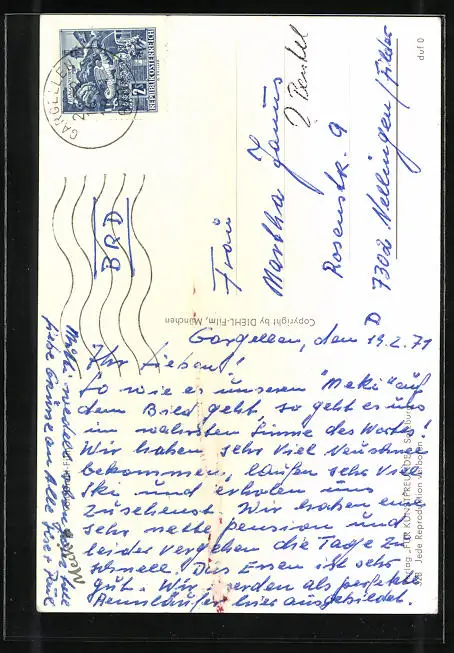 GARGELLEN
2
REPUBLIK ÖSTERREICH
BRD
Frau
Martha Jauus
Rosenstr. 9
7302 Nellingen/Filder
D
Copyright by DIEHL-Film, München
duf 0
Verlag "FÜR KUNSTFREUNDE", Salzburg
Jede Reproduktion verboten
Gargellen, den 19.2.71
Ihr Lieben!
So wie es unserem "Meki" auf
dem Bild geht, so geht es uns
im wahrsten Sinne des Wortes!
Wir haben sehr viel Neuschnee
bekommen, laufen sehr viel
Ski und erholen uns
zusehenst. Wir haben eine
sehr nette pension und
leider vergehen die Tage zu
schnell. Das Essen ist sehr
gut. Wir werden als perfekte
Rennläufer hier ausgebildet.
liebe Grüsse an Alle